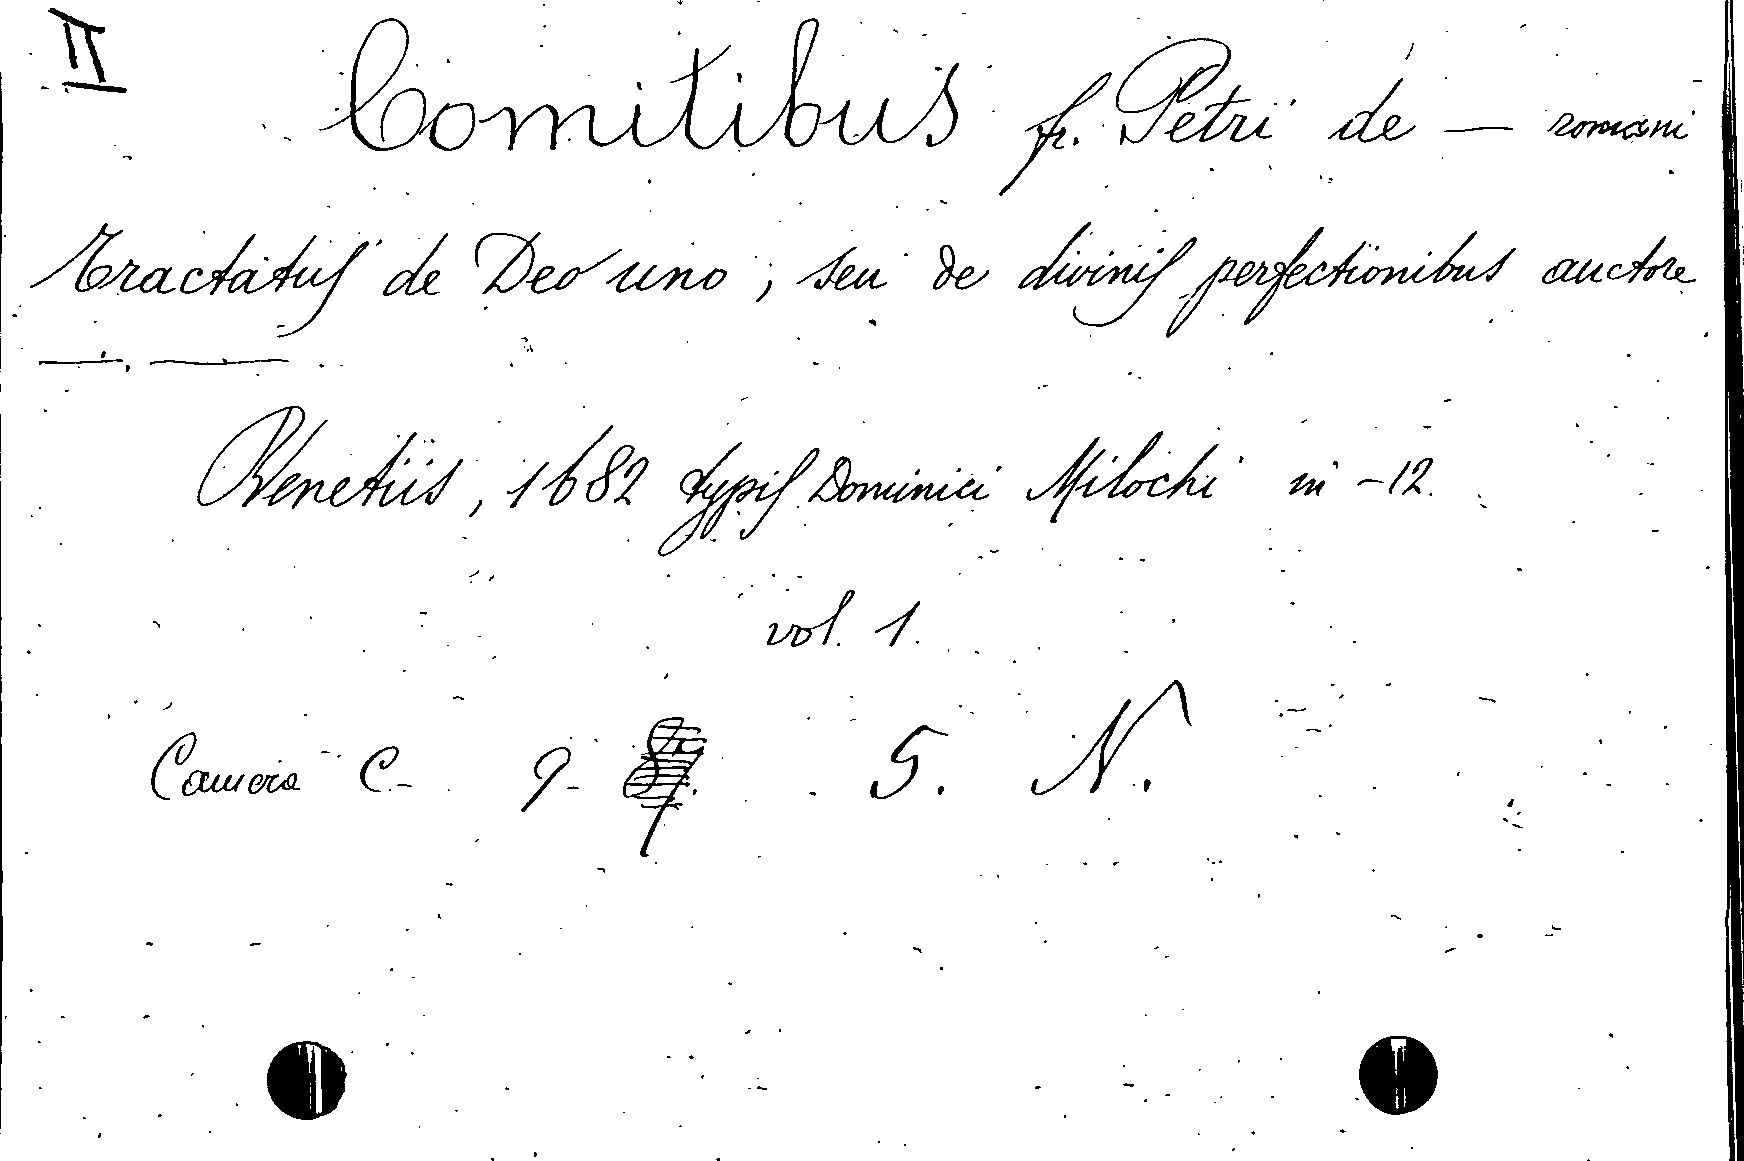 II
Comitibus fr. Petri de — romani
Tractatus de Deo uno, seu de divinis perfectionibus auctore
—. —
Venetiis, 1682 typis Dominici Milochi in -12.
vol. 1.
Camera C- 9- 5. N.